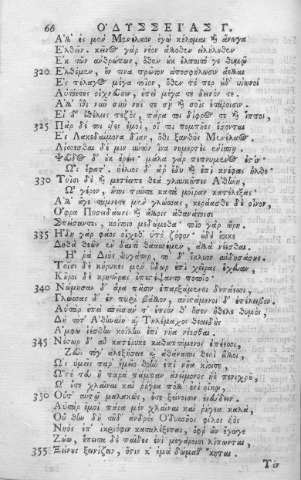 66 ὈΔΥΣΣΕΊΑΣ Γ.
Ἀλλ' ἐς μὲν Μενέλαον ἐγὼ κέλομαι καὶ ἄνωγα
Ἐλθεῖν. κεῖνος γὰρ νέον ἄλλοθεν εἰλήλουθεν
Ἐκ τῶν ἀνθρώπων, ὅθεν οὐκ ἔλποιτό γε θυμῷ
320. Ἐλθέμεν, ὅν τινα πρῶτον ἀποσφήλωσιν ἄελλαι
Ἐς πέλαγος μέγα τοῖον, ὅθεν τέ περ οὐδ' οἰωνοὶ
Αὐτόετες οἰχνεῦσιν, ἐπεὶ μέγα τε δεινόν τε.
Ἀλλ' ἴθι νῦν σὺν νηΐ τε σῇ καὶ σοῖς ἑτάροισιν.
Εἰ δ' ἐθέλεις πεζὸς, πάρα τοι δίφρος τε καὶ ἵπποι,
325 Πὰρ δέ τοι υἷες ἐμοὶ, οἵ τοι πομπῆες ἔσονται
Ἐς Λακεδαίμονα δῖαν, ὅθι ξανθὸς Μενέλαος.
Λίσσεσθαι δέ μιν αὐτὸν ἵνα νημερτὲς ἐνίσπῃ.
Ψεῦδος δ' οὐκ ἐρέει· μάλα γὰρ πεπνυμένος ἐστίν.
Ὣς ἔφατ'. ἠέλιος δ' ἄρ ἔδυ καὶ ἐπὶ κνέφας ἦλθε.
330 Τοῖσι δὲ καὶ μετέειπε θεὰ γλαυκῶπις Ἀθήνη,
Ὦ γέρον, ἤτοι ταῦτα κατὰ μοῖραν κατέλεξας·
Ἀλλ' ἄγε τάμνετε μὲν γλώσσας, κεράασθε δὲ οἶνον,
Ὄφρα Ποσειδάωνι καὶ ἄλλοις ἀθανάτοισι
Σπείσαντες, κοίτοιο μεδώμεθα· τοῖο γὰρ ὥρη.
335 Ἤδη γὰρ φάος οἴχεθ' ὑπὸ ζόφον· οὐδὲ ἔοικε
Δηθὰ θεῶν ἐν δαιτὶ θαασσέμεν, ἀλλὰ νέεσθαι.
Ἦ ῥα Διὸς θυγάτηρ, τοὶ δ' ἔκλυον αὐδησάσης.
Τοῖσι δὲ κήρυκες μὲν ὕδωρ ἐπὶ χεῖρας ἔχευαν,
Κοῦροι δὲ κρητῆρας ἐπεστέψαντο ποτοῖο·
340 Νώμησαν δ' ἄρα πᾶσιν ἐπαρξάμενοι δεπάεσσι,
Γλώσσας δ' ἐν πυρὶ βάλλον, ἀνιστάμενοι δ' ἐπέλειβον.
Αὐτὰρ ἐπεὶ σπεῖσαν τ' ἔπιον θ' ὅσον ἤθελε θυμὸς,
Δὴ τότ' Ἀθηναίη καὶ Τηλέμαχος θεοειδὴς
Ἄμφω ἱέσθην κοίλην ἐπὶ νῆα νέεσθαι.
345 Νέστωρ δ' αὖ κατέρυκε καθαπτόμενος ἐπέεσσι,
Ζεὺς τόγ' ἀλεξήσειε καὶ ἀθάνατοι θεοὶ ἄλλοι,
Ὡς ὑμεῖς παρ' ἐμεῖο θοὴν ἐπὶ νῆα κίοιτε,
Ὥστε τευ ἢ παρὰ πάμπαν ἀνείμονος ἠὲ πενιχροῦ,
Ὧ οὔτι χλαῖναι καὶ ῥήγεα πόλλ' ἐνὶ οἴκῳ,
350 Οὔτ' αὐτῷ μαλακῶς, οὔτε ξείνοισιν ἐνεύδειν.
Αὐτὰρ ἐμοὶ πάρα μὲν χλαῖναι καὶ ῥήγεα καλά,
Οὔ θην δὴ τοῦδ' ἀνδρὸς Ὀδυσσῆος φίλος υἱὸς
Νηὸς ἐπ' ἰκριόφιν καταλέξεται, ὄφρ' ἂν ἔγωγε
Ζώω, ἔπειτα δὲ παῖδες ἐνὶ μεγάροισι λίπωνται,
355. Ξείνους ξεινίζειν, ὅστις κ' ἐμὰ δώμαθ' ἵκηται.
Τὸν